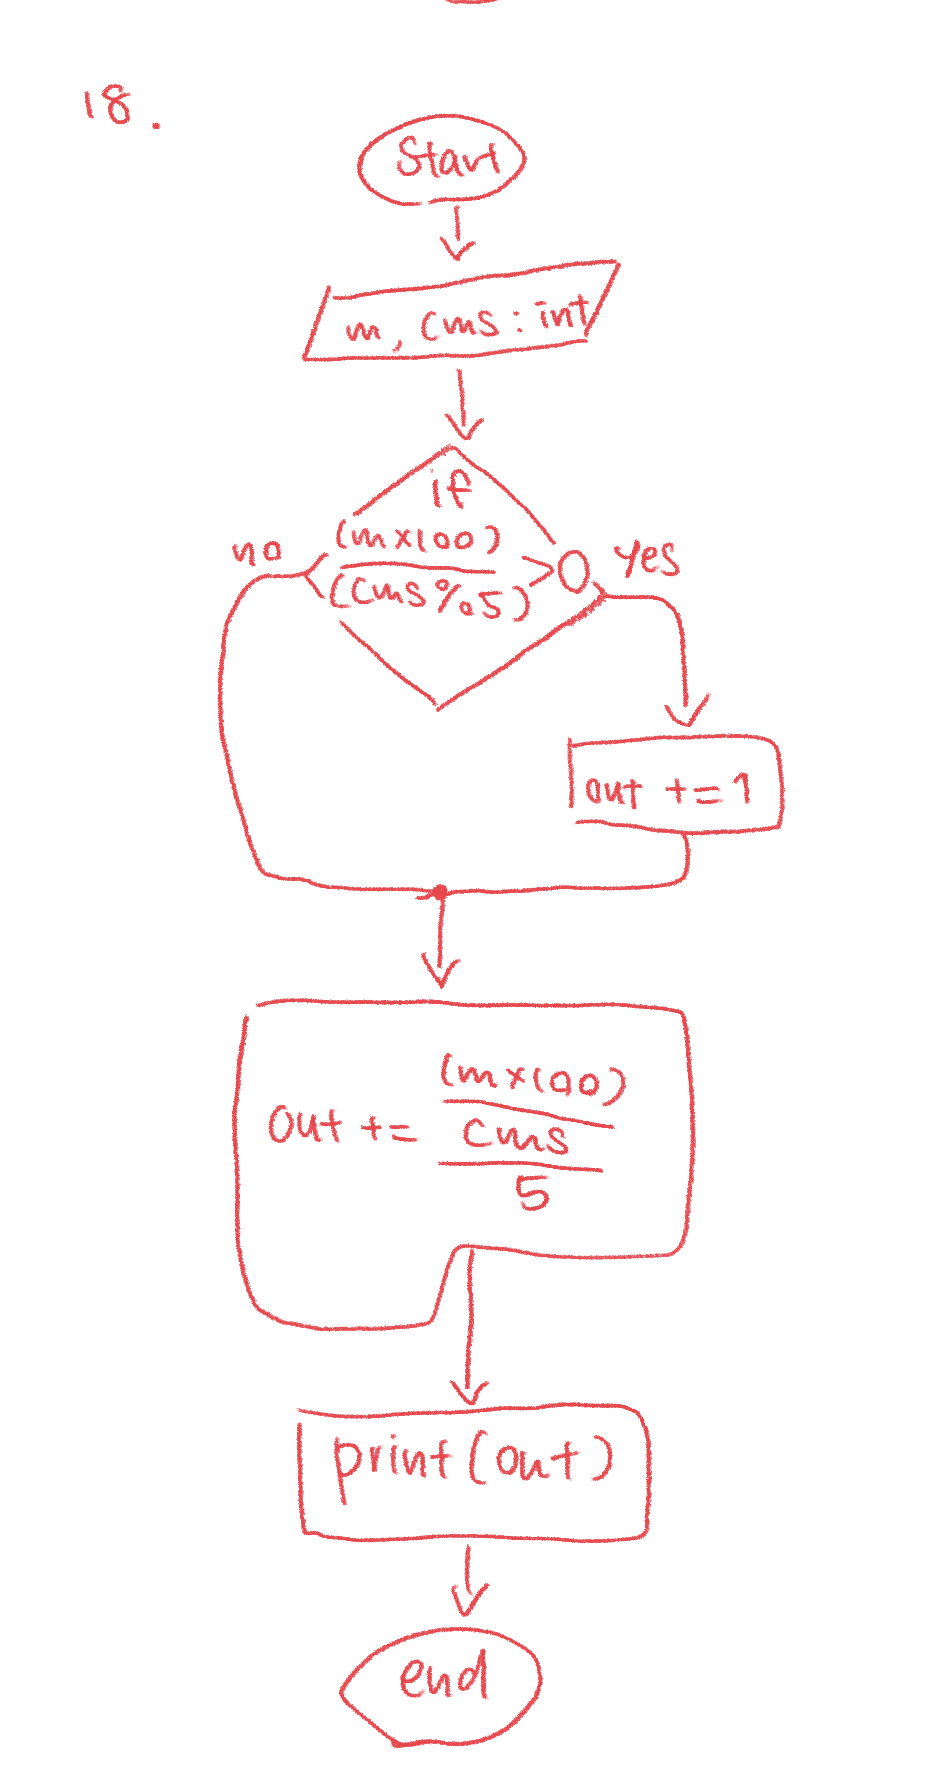 18.
Start
m, cms : int
if
(m×100)
(cms%5)
>0
no
yes
out +=1
out +=
(m×100)
cms
5
print(out)
end